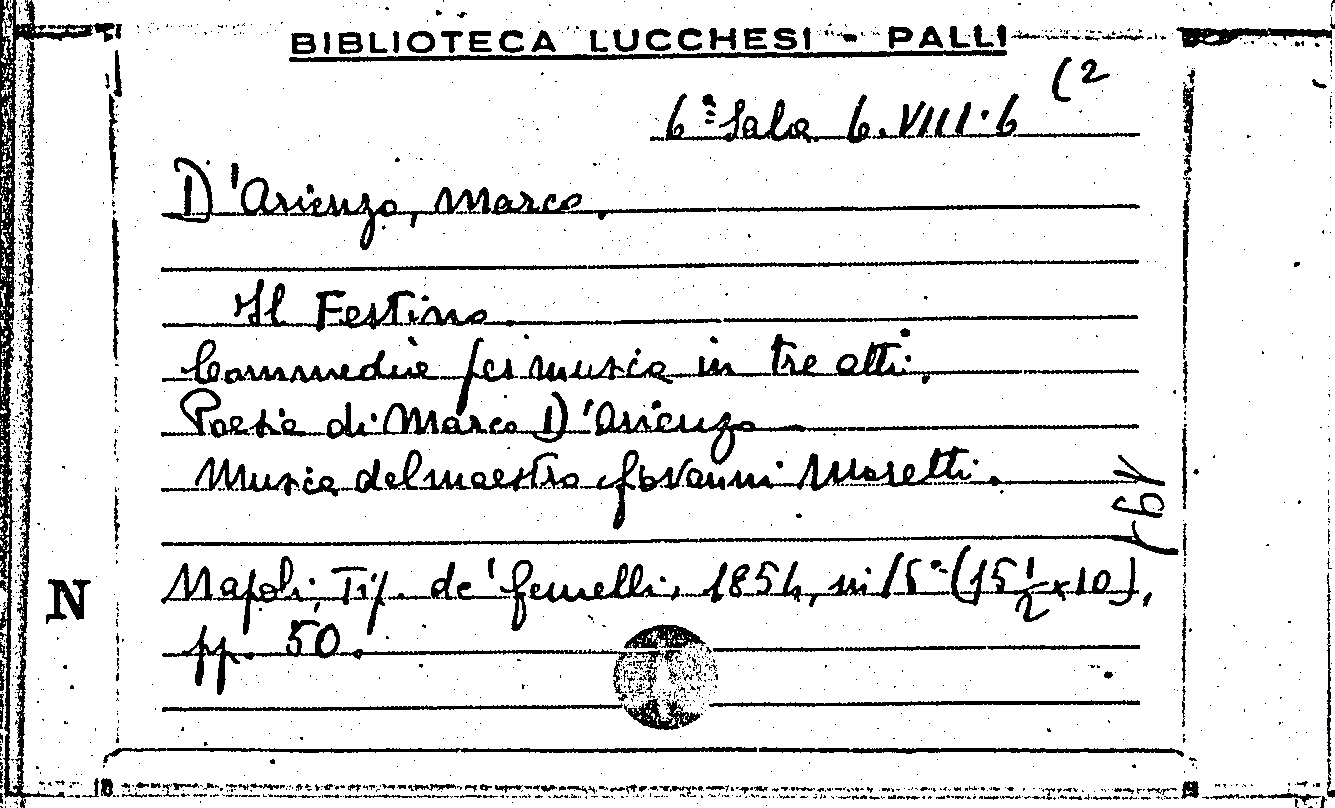 BIBLIOTECA LUCCHESI - PALLI
6ª Sala 6.VIII.6 (2
D'Arienzo, Marco.
Il Festino.
Commedia per musica in tre atti.
Poesia di Marco D'Arienzo
Musica del maestro Giovanni Moretti.
N
Napoli, Tip. de' Gemelli, 1854, in 15º (15 1/2 x 10),
pp. 50.